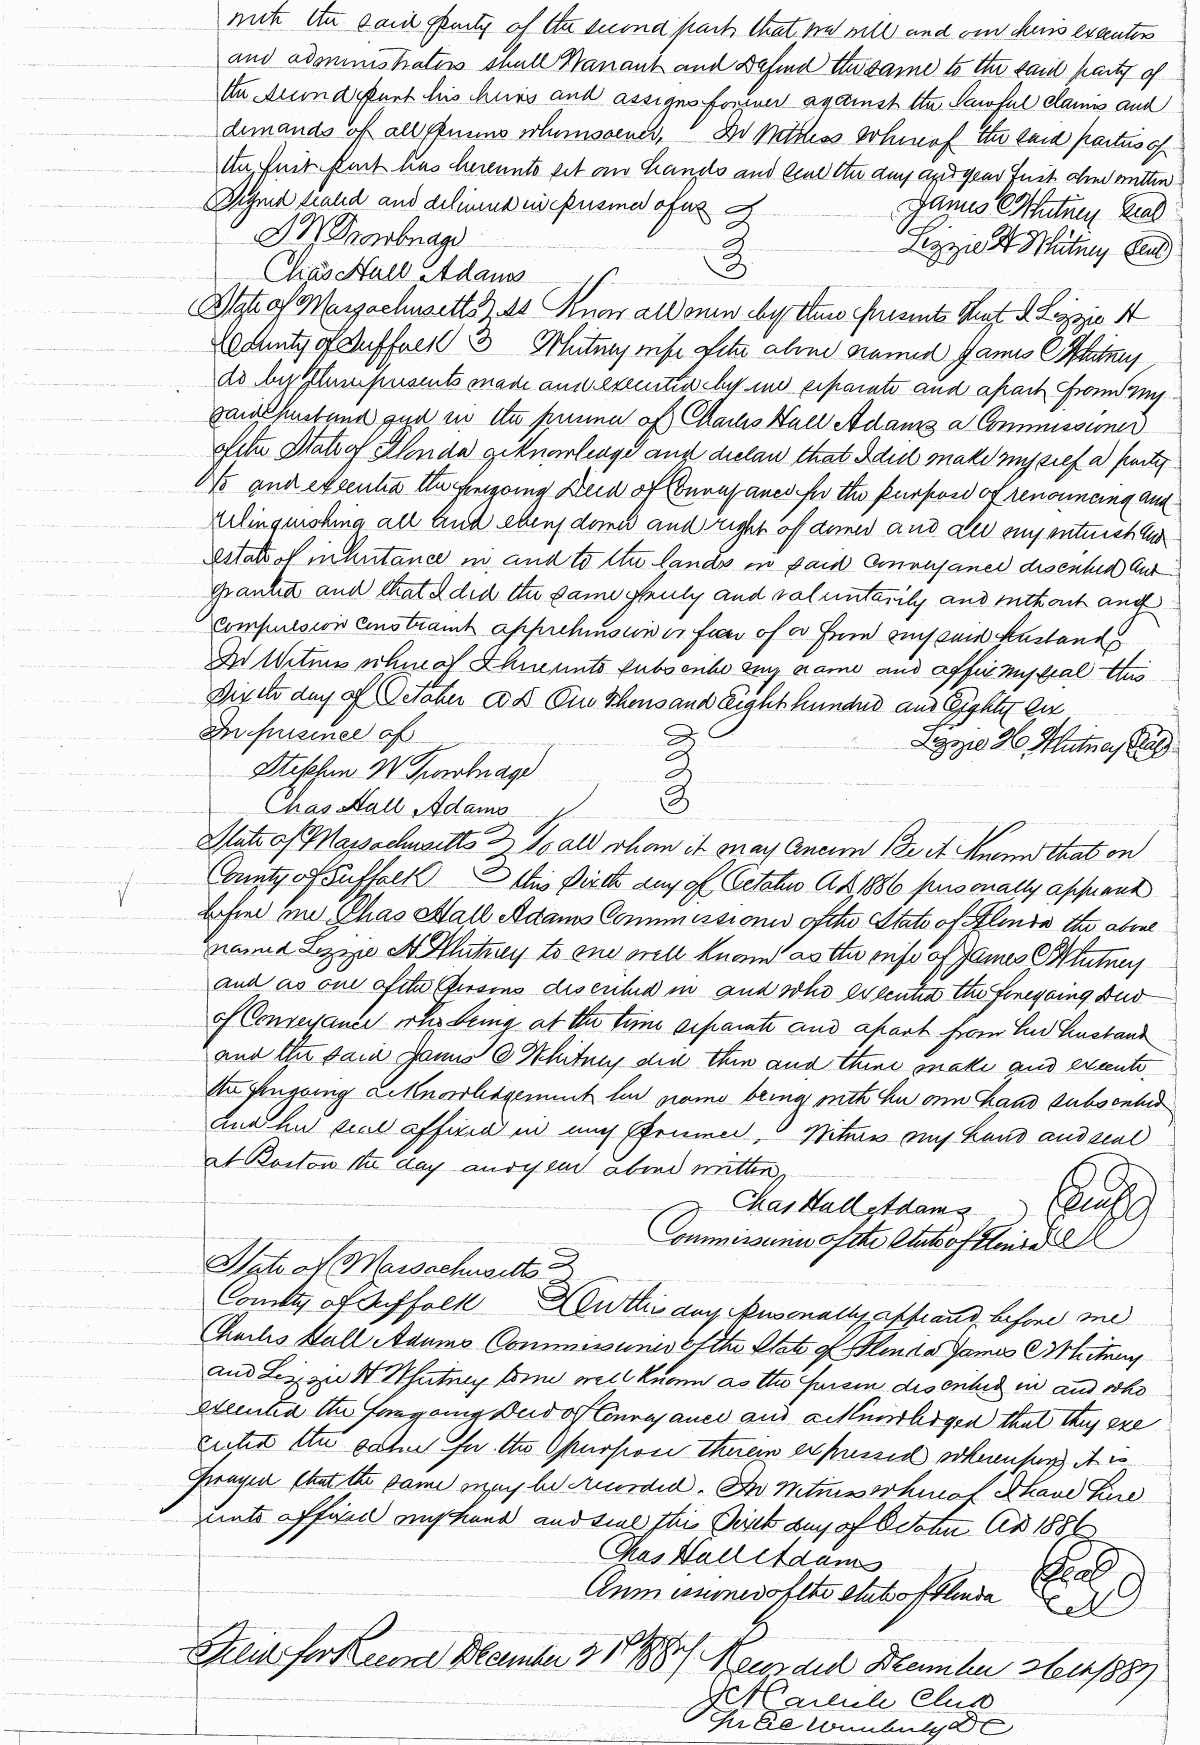 with the said party of the second part that we will and our heirs executors
and administrators shall Warrant and Defend the same to the said party of
the second part his heirs and assigns forever against the lawful claims and
demands of all persons whomsoever, In Witness whereof the said parties of
the first part has hereunto set our hands and seal the day and year first above written
Signed sealed and delivered in presence of us
James C Whitney Seal
S W Trowbridge
Lizzie H Whitney Seal
Chas Hall Adams
State of Massachusetts } ss Know all men by these presents that I Lizzie H
County of Suffolk } Whitney wife of the above named James C Whitney
do by these presents made and executed by me separate and apart from my
said husband and in the presence of Charles Hall Adams a Commissioner
of the State of Florida acknowledge and declare that I did make myself a party
to and executed the foregoing Deed of Conveyance for the purpose of renouncing and
relinquishing all and every dower and right of dower and all my interest and
estate of inheritance in and to the lands in said conveyance described and
granted and that I did the same freely and voluntarily and without any
compulsion constraint apprehension or fear of or from my said husband
In Witness whereof I hereunto subscribe my name and affix my seal this
Sixth day of October AD One thousand Eight hundred and Eighty six
In presence of
Lizzie H. Whitney Seal
Stephen W Trowbridge
Chas Hall Adams
State of Massachusetts } To all whom it may concern Be it Known that on
County of Suffolk } this Sixth day of October AD 1886 personally appeared
before me Chas Hall Adams Commissioner of the State of Florida the above
named Lizzie H Whitney to me well known as the wife of James C Whitney
and as one of the persons described in and who executed the foregoing Deed
of Conveyance who being at the time separate and apart from her husband
and the said James C Whitney did then and there make and execute
the forgoing acknowledgement her name being with her own hand subscribed
and her seal affixed in my presence, Witness my hand and seal
at Boston the day and year above written,
Chas Hall Adams Seal
Commissioner of the State of Florida
State of Massachusetts }
County of Suffolk } On this day personally appeared before me
Charles Hall Adams Commissioner of the State of Florida James C Whitney
and Lizzie H Whitney to me well known as the person described in and who
executed the foregoing Deed of Conveyance and acknowledged that they exe
cuted the same for the purpose therein expressed whereupon it is
prayed that the same may be recorded. In witness whereof I have here
unto affixed my hand and seal this Sixth day of October AD 1886
Chas Hall Adams
Seal
Commissioner of the State of Florida
Filed for Record December 21st 1887 Recorded December 26th 1887
Carlile Clerk
DC